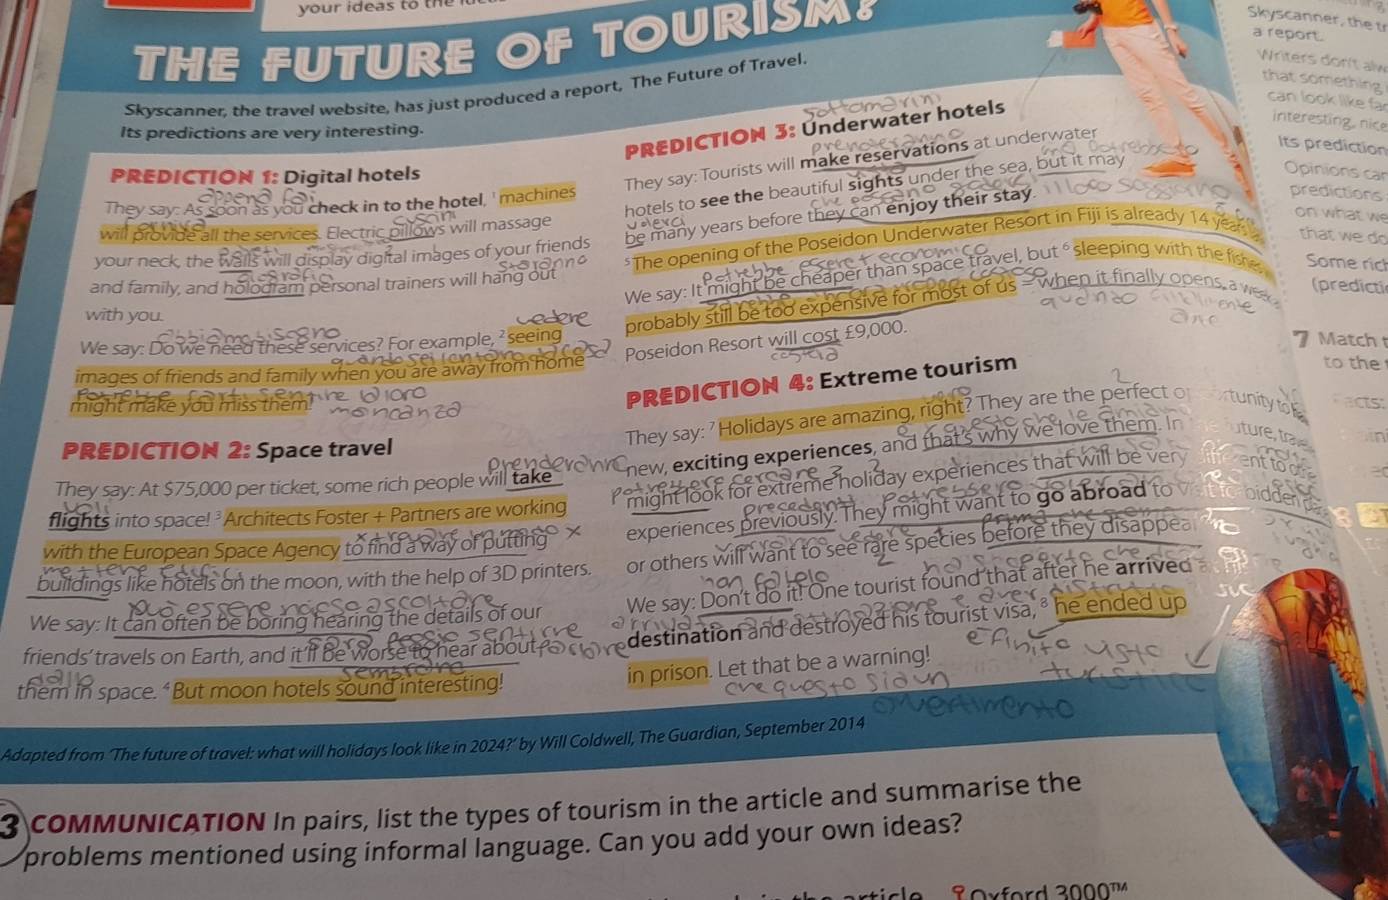 your ideas to the
THE FUTURE OF TOURISM?
Skyscanner, the travel website, has just produced a report, The Future of Travel.
Its predictions are very interesting.
PREDICTION 1: Digital hotels
appena fai
They say: As soon as you check in to the hotel, ¹machines
fornirà cuscini
will provide all the services. Electric pillows will massage
your neck, the walls will display digital images of your friends
staranno
and family, and hologram personal trainers will hang out
with you.
abbiamo bisogno vedere
We say: Do we need these services? For example, ²seeing
quando sei lontano da casa
images of friends and family when you are away from home
might make you miss them!
mancanza
PREDICTION 2: Space travel
prenderanno
They say: At $75,000 per ticket, some rich people will take
voli
flights into space! ³Architects Foster + Partners are working
with the European Space Agency to find a way of putting
mettere edifici
buildings like hotels on the moon, with the help of 3D printers.
può essere noioso ascoltare
We say: It can often be boring hearing the details of our
sarà peggio sentire
friends' travels on Earth, and it'll be worse to hear about
dallo sembrano
them in space. ⁴But moon hotels sound interesting!
sottomarini
PREDICTION 3: Underwater hotels
prenoteranno
They say: Tourists will make reservations at underwater
ma potrebbe
hotels to see the beautiful sights under the sea, but it may
volerci che possano godere il loro soggiorno
be many years before they can enjoy their stay.
⁵The opening of the Poseidon Underwater Resort in Fiji is already 14 years
potrebbe essere + economico
We say: It might be cheaper than space travel, but ⁶sleeping with the fishes
costoso
probably still be too expensive for most of us – when it finally opens, a week
quando finalmente
apre
Poseidon Resort will cost £9,000.
costerà
PREDICTION 4: Extreme tourism
vero
They say: ⁷Holidays are amazing, right? They are the perfect
e questo che le amiamo
new, exciting experiences, and that's why we love them. In
potrebbero cercare
might look for extreme holiday experiences that will be very
precedenti
experiences previously. They might want to go abroad to
vedere prima che
or others will want to see rare species before they disappear
non fatelo ha scoperto che
We say: Don't do it! One tourist found that after he arrived
destinazione e aver distrutto
destination and destroyed his tourist visa, ⁸he ended up
è finito
visto
turistico
in prison. Let that be a warning!
che questo sia un
avvertimento
Adapted from 'The future of travel: what will holidays look like in 2024?' by Will Coldwell, The Guardian, September 2014
3 COMMUNICATION In pairs, list the types of tourism in the article and summarise the
problems mentioned using informal language. Can you add your own ideas?
Oxford 3000™
Skyscanner, the
a report.
Writers don't
that something
can look like
interesting, nice
Its prediction
Opinions can
predictions
on what we
that we do
Some rich
7 Match
to the